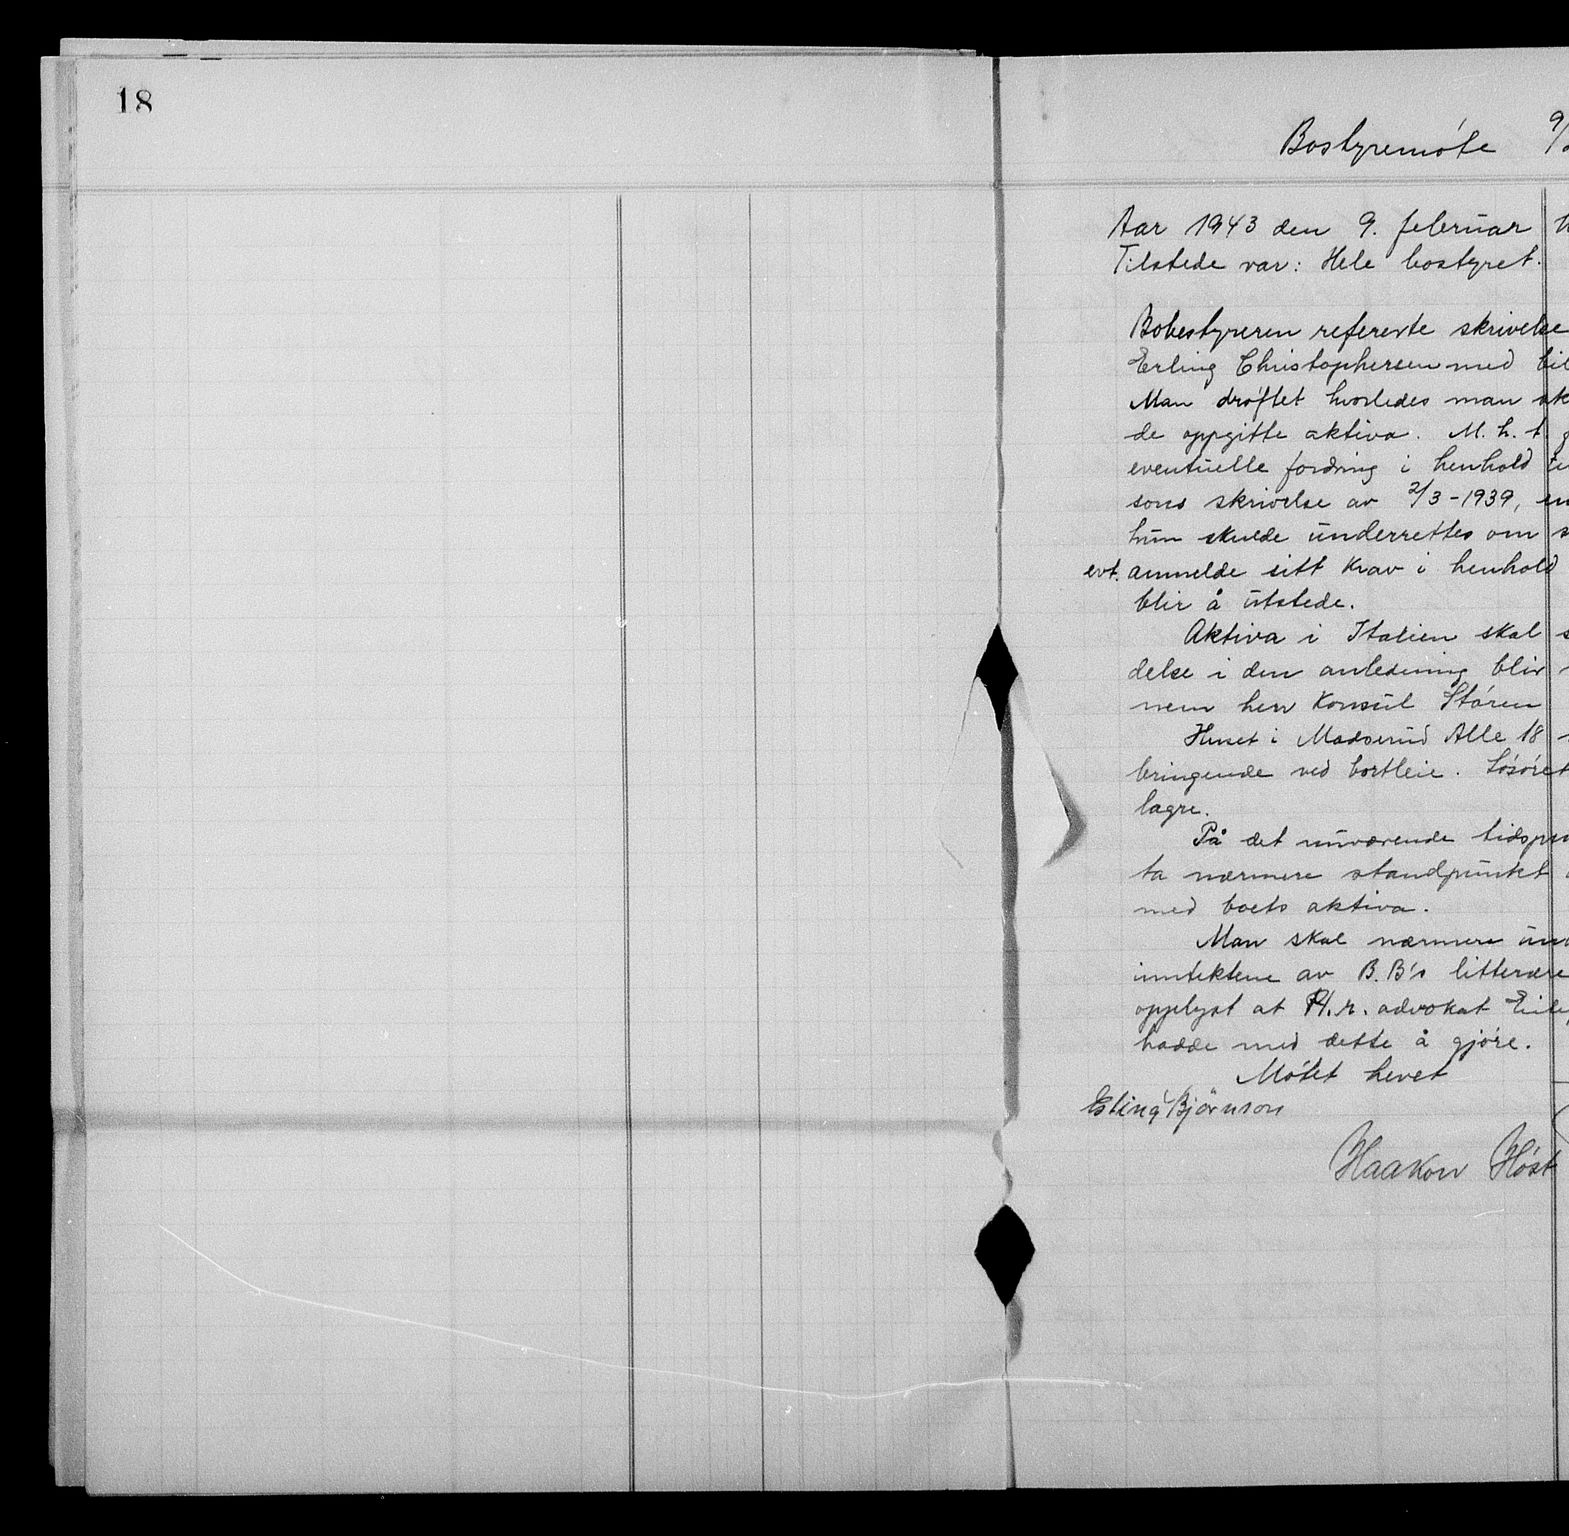 18
Bostyremöte 9/
Aar 1943 den 9. februar
Tilstede var: Hele bostyret.
Bobestyreren refererte skrivelse
Erling Christophersen med bil
Man dröftet hvorledes man sk
de oppgitte aktiva. M. h. t. g
eventuelle fordring i henhold ti
sons skrivelse av 2/3-1939, en
hun skulde underrettes om s
evt. anmelde sitt krav i henhold
blir å utstede.
Aktiva i Italien skal s
delse i den anledning blir
nem herr Konsul Stören
Huset i Madserud Alle 18
bringende ved bortleie. Lösöret
lagre.
På det nuværende tidspun
ta nærmere standpunkt
med boets aktiva.
Man skal nærmere und
inntektene av B.B's litterære
opplyst at H.r. advokat
hadde med dette å gjöre.
Mötet hevet
Esling Björnson
Haakon Höst